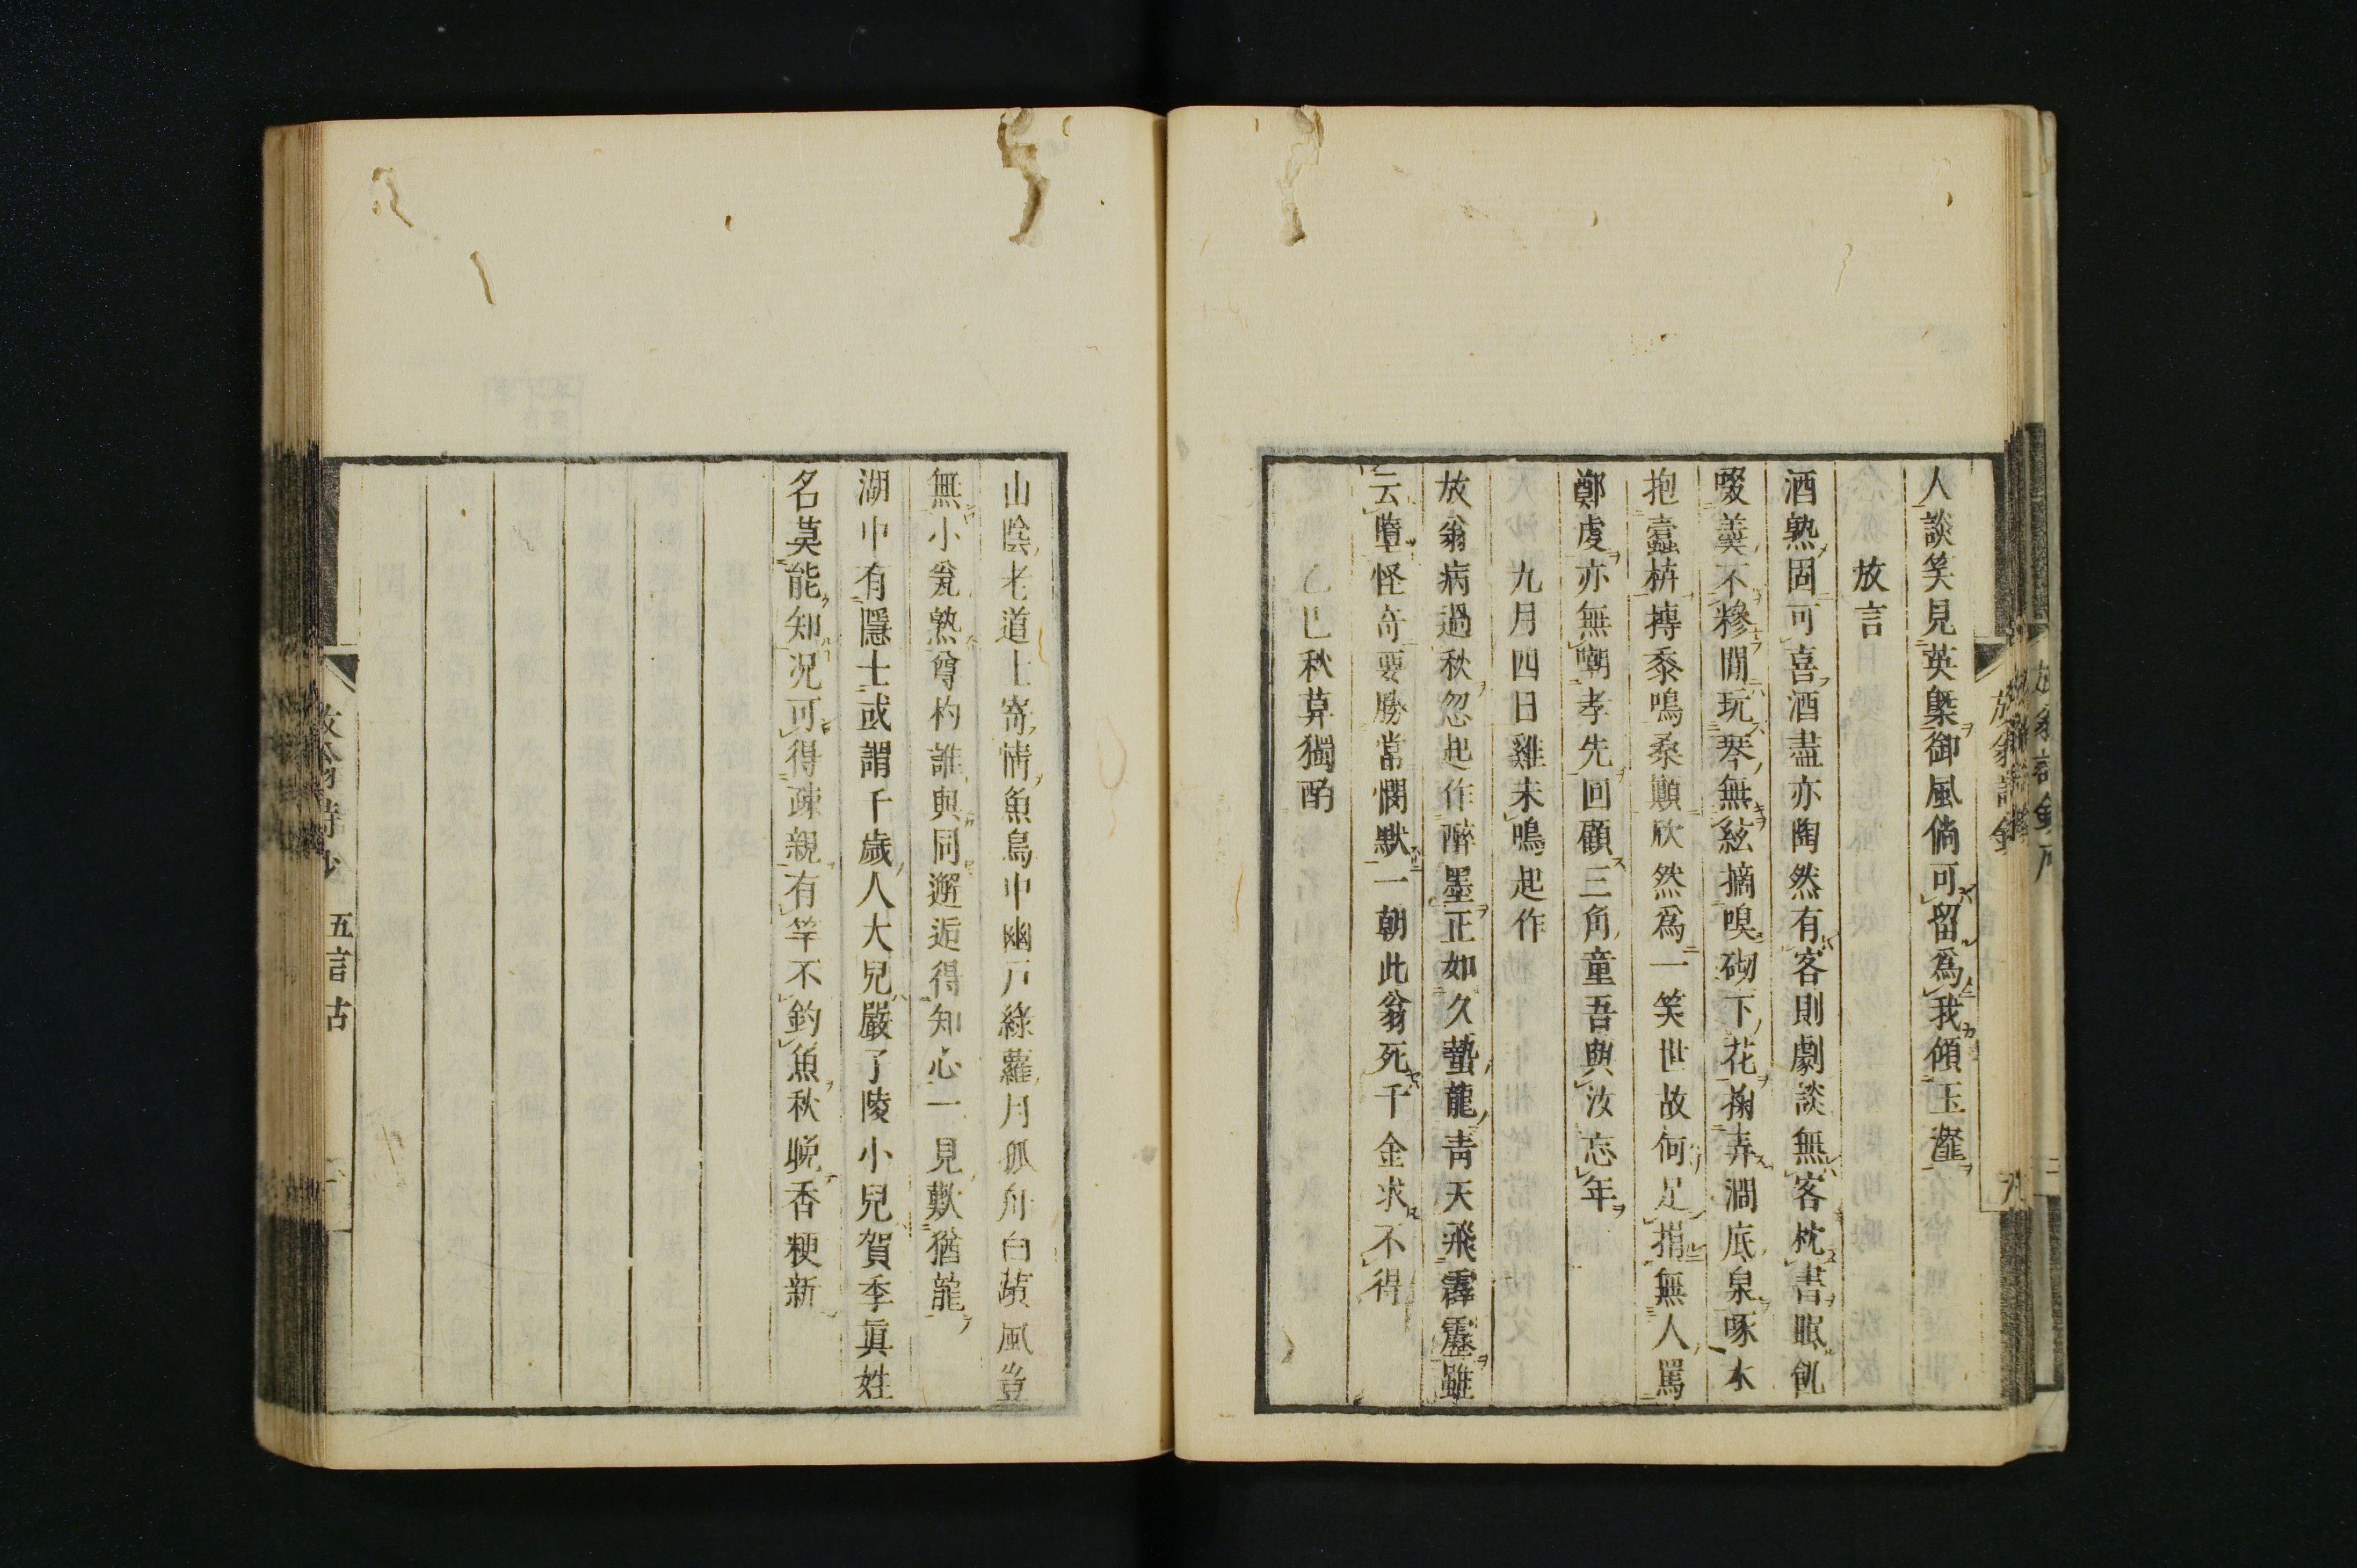 人談笑見英槩御風倘可留爲我傾玉瀣
放言
酒熟固可喜酒盡亦陶然有客則劇談無客枕書眠飢
啜羹不糝閒玩琴無絃摘嗅砌下花掬弄澗底泉啄木
抱蠹枿搏黍鳴桑顚欣然爲一笑世故何足捐無人罵
鄭虔亦無嘲孝先回顧三角童吾與汝忘年
九月四日雞未鳴起作
放翁病過秋忽起作醉墨正如久蟄龍青天飛霹靂雖
云墮怪奇要勝常憫默一朝此翁死千金求不得
乙巳秋莫獨酌
放翁詩鈔
山陰老道士寄情魚鳥中幽戸綠蘿月孤舟白蘋風豈
無小瓮熟尊杓誰與同邂逅得知心一見歎猶龍
湖中有隱士或謂千歲人大兒嚴子陵小兒賀季眞姓
名莫能知况可得疎親有竿不釣魚秋晩香粳新
放翁詩鈔 五言古